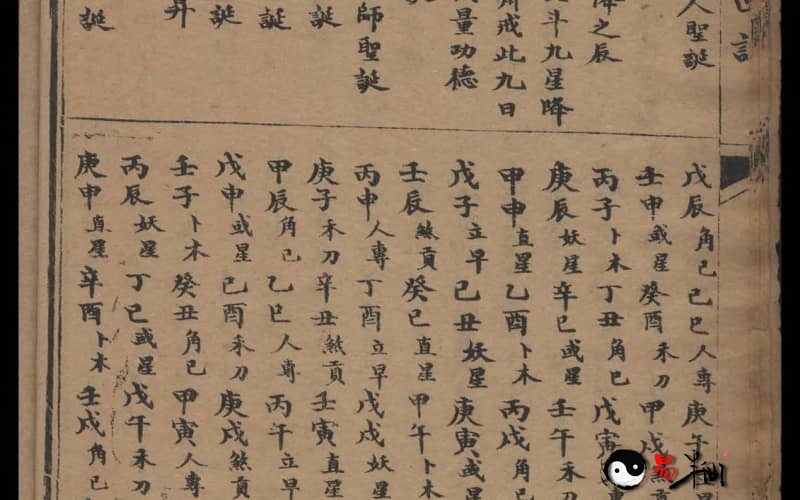 人聖誕
降之辰
斗九星降
戒此九日
量功德
師聖誕
誕
誕
誕
昇
誕
戊辰角己己巳人專庚午
壬申或星癸酉禾刀甲戌煞貢
丙子卜木丁丑角己戊寅
庚辰妖星辛巳或星壬午禾刀
甲申直星乙酉卜木丙戌角己
戊子立早己丑妖星庚寅或星
壬辰煞貢癸巳直星甲午卜木
丙申人專丁酉立早戊戌妖星
庚子禾刀辛丑煞貢壬寅直星
甲辰角己乙巳人專丙午立早
戊申或星己酉禾刀庚戌煞貢
壬子卜木癸丑角己甲寅人專
丙辰妖星丁巳或星戊午禾刀
庚申直星辛酉卜木壬戌角己
易